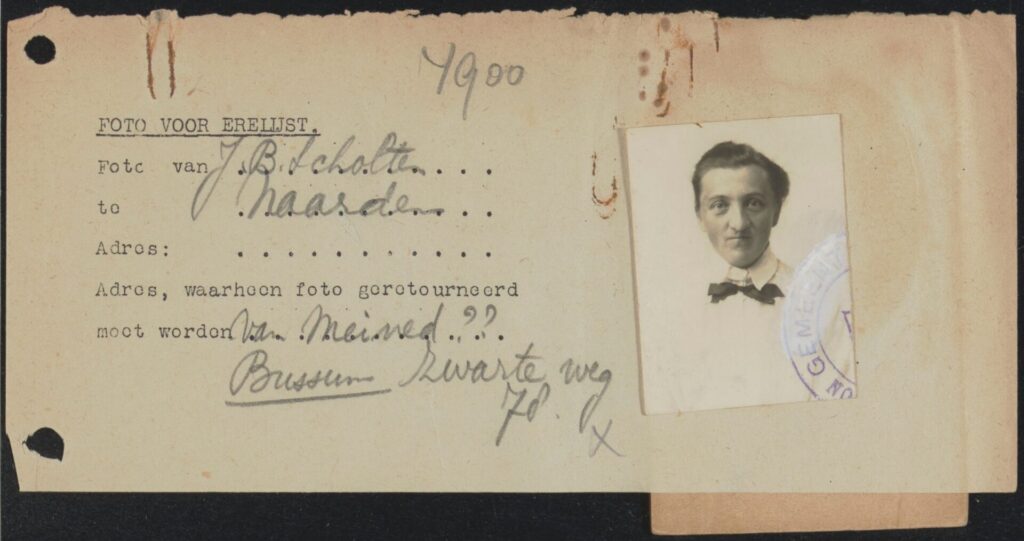 1900
FOTO VOOR ERELIJST.
Foto van J.B. Scholten
te Naarden
Adres: . . . . . . . . . . .
Adres, waarheen foto geretourneerd
moet worden Van Meined ??
Bussum Zwarte weg
78.
X
GEMEEN